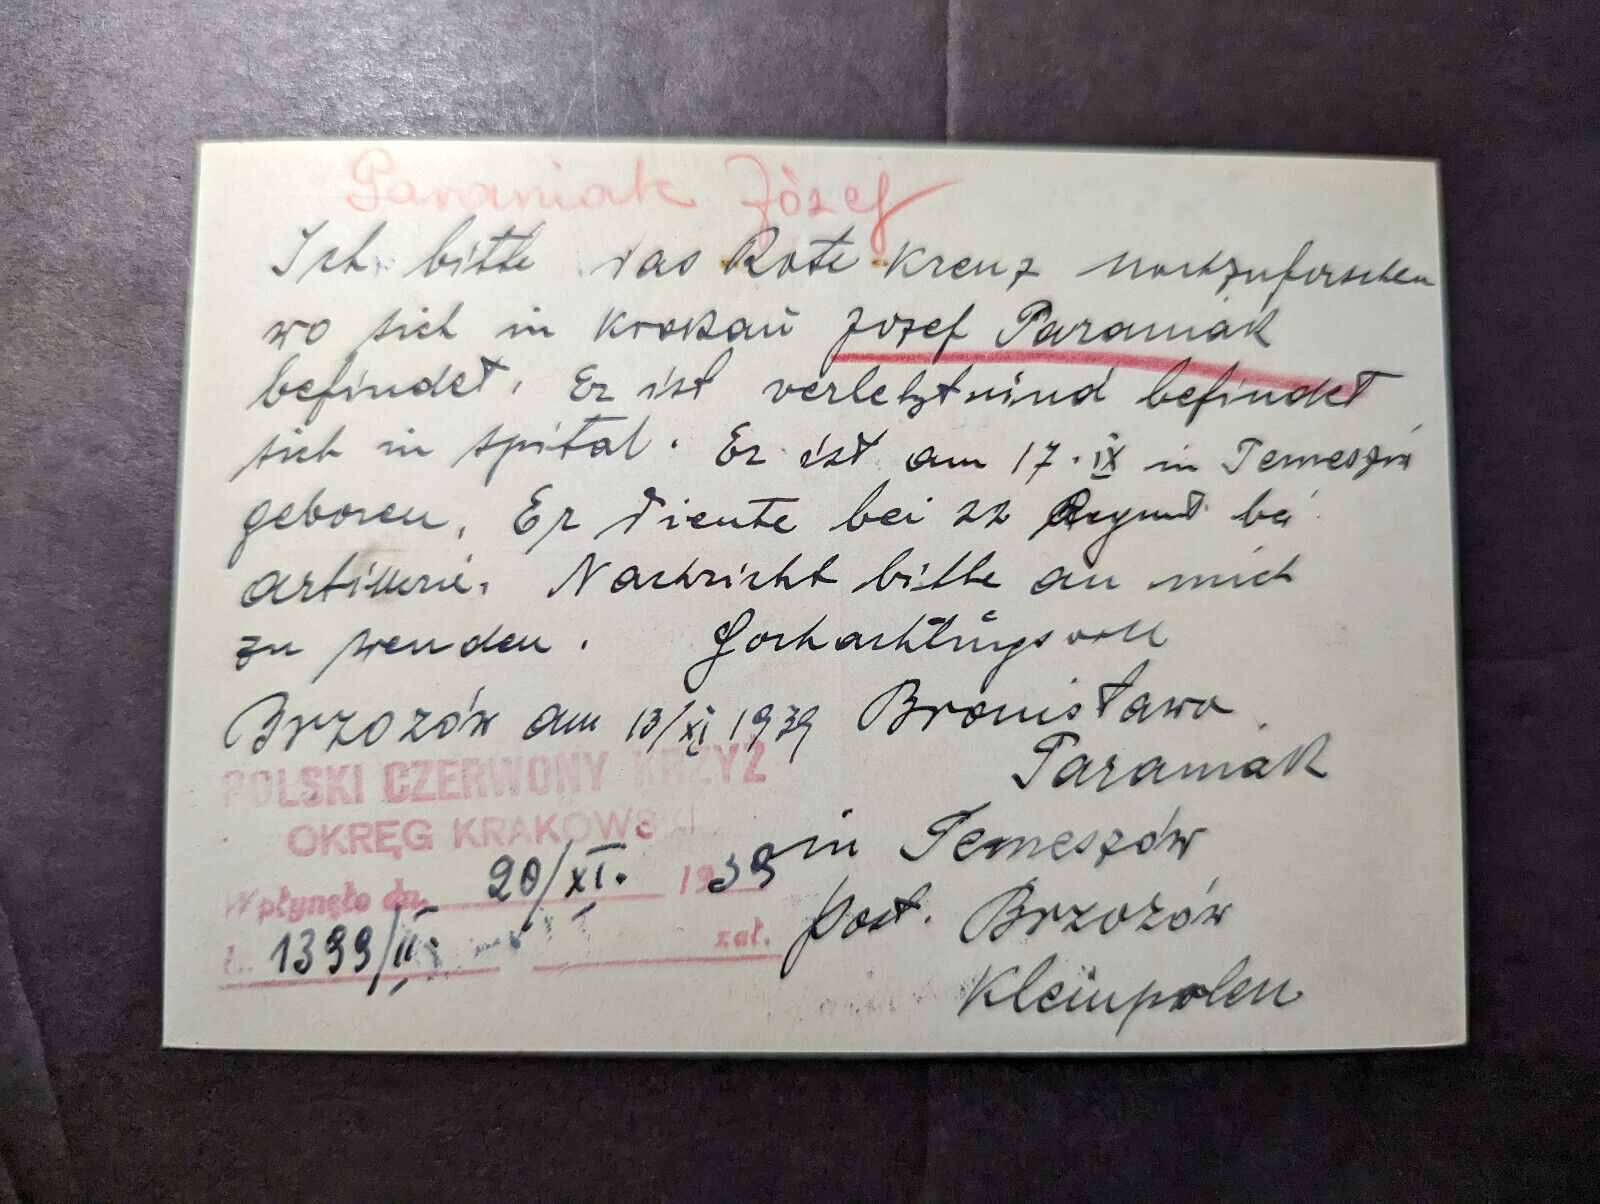 Paraniak Józef
Ich bitte das Rote Kreuz nachzuforschen
wo sich in Krakau Józef Paraniak
befindet. Er ist verletzt und befindet
sich in Spital. Er ist am 17.IX in Temeszów
geboren. Er diente bei 22 Regmt bei
artillerie. Nachricht bitte an mich
zu wenden. Hochachtungsvoll
Brzozów am 13/XI 1939 Bronisława
Paraniak
POLSKI CZERWONY KRZYŻ
OKRĘG KRAKOWSKI
in Temeszów
Wpłynęło dn. 20/XI. 1939
post. Brzozów
L. 1399/II zał.
Kleinpolen